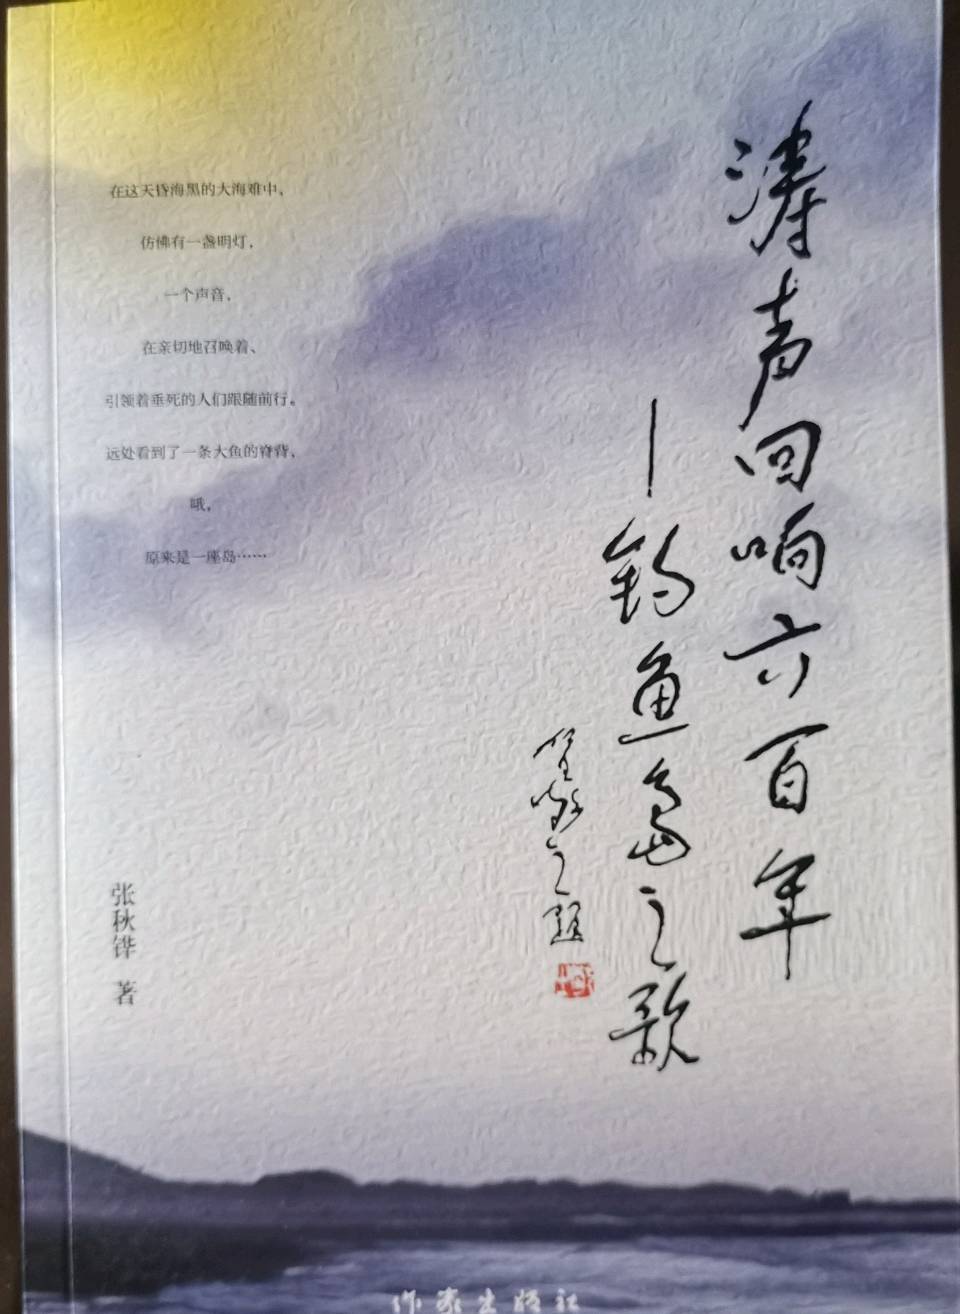 涛声回响六百年
—钓鱼岛之歌
在这天昏海黑的大海难中，
仿佛有一盏明灯，
一个声音，
在亲切地召唤着、
引领着垂死的人们跟随前行。
远处看到了一条大鱼的脊背，
哦，
原来是一座岛……
张秋铧 著
作家出版社